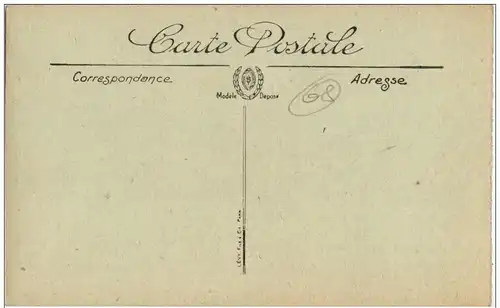 Carte Postale
Correspondance
Adresse
Modèle Déposé
68